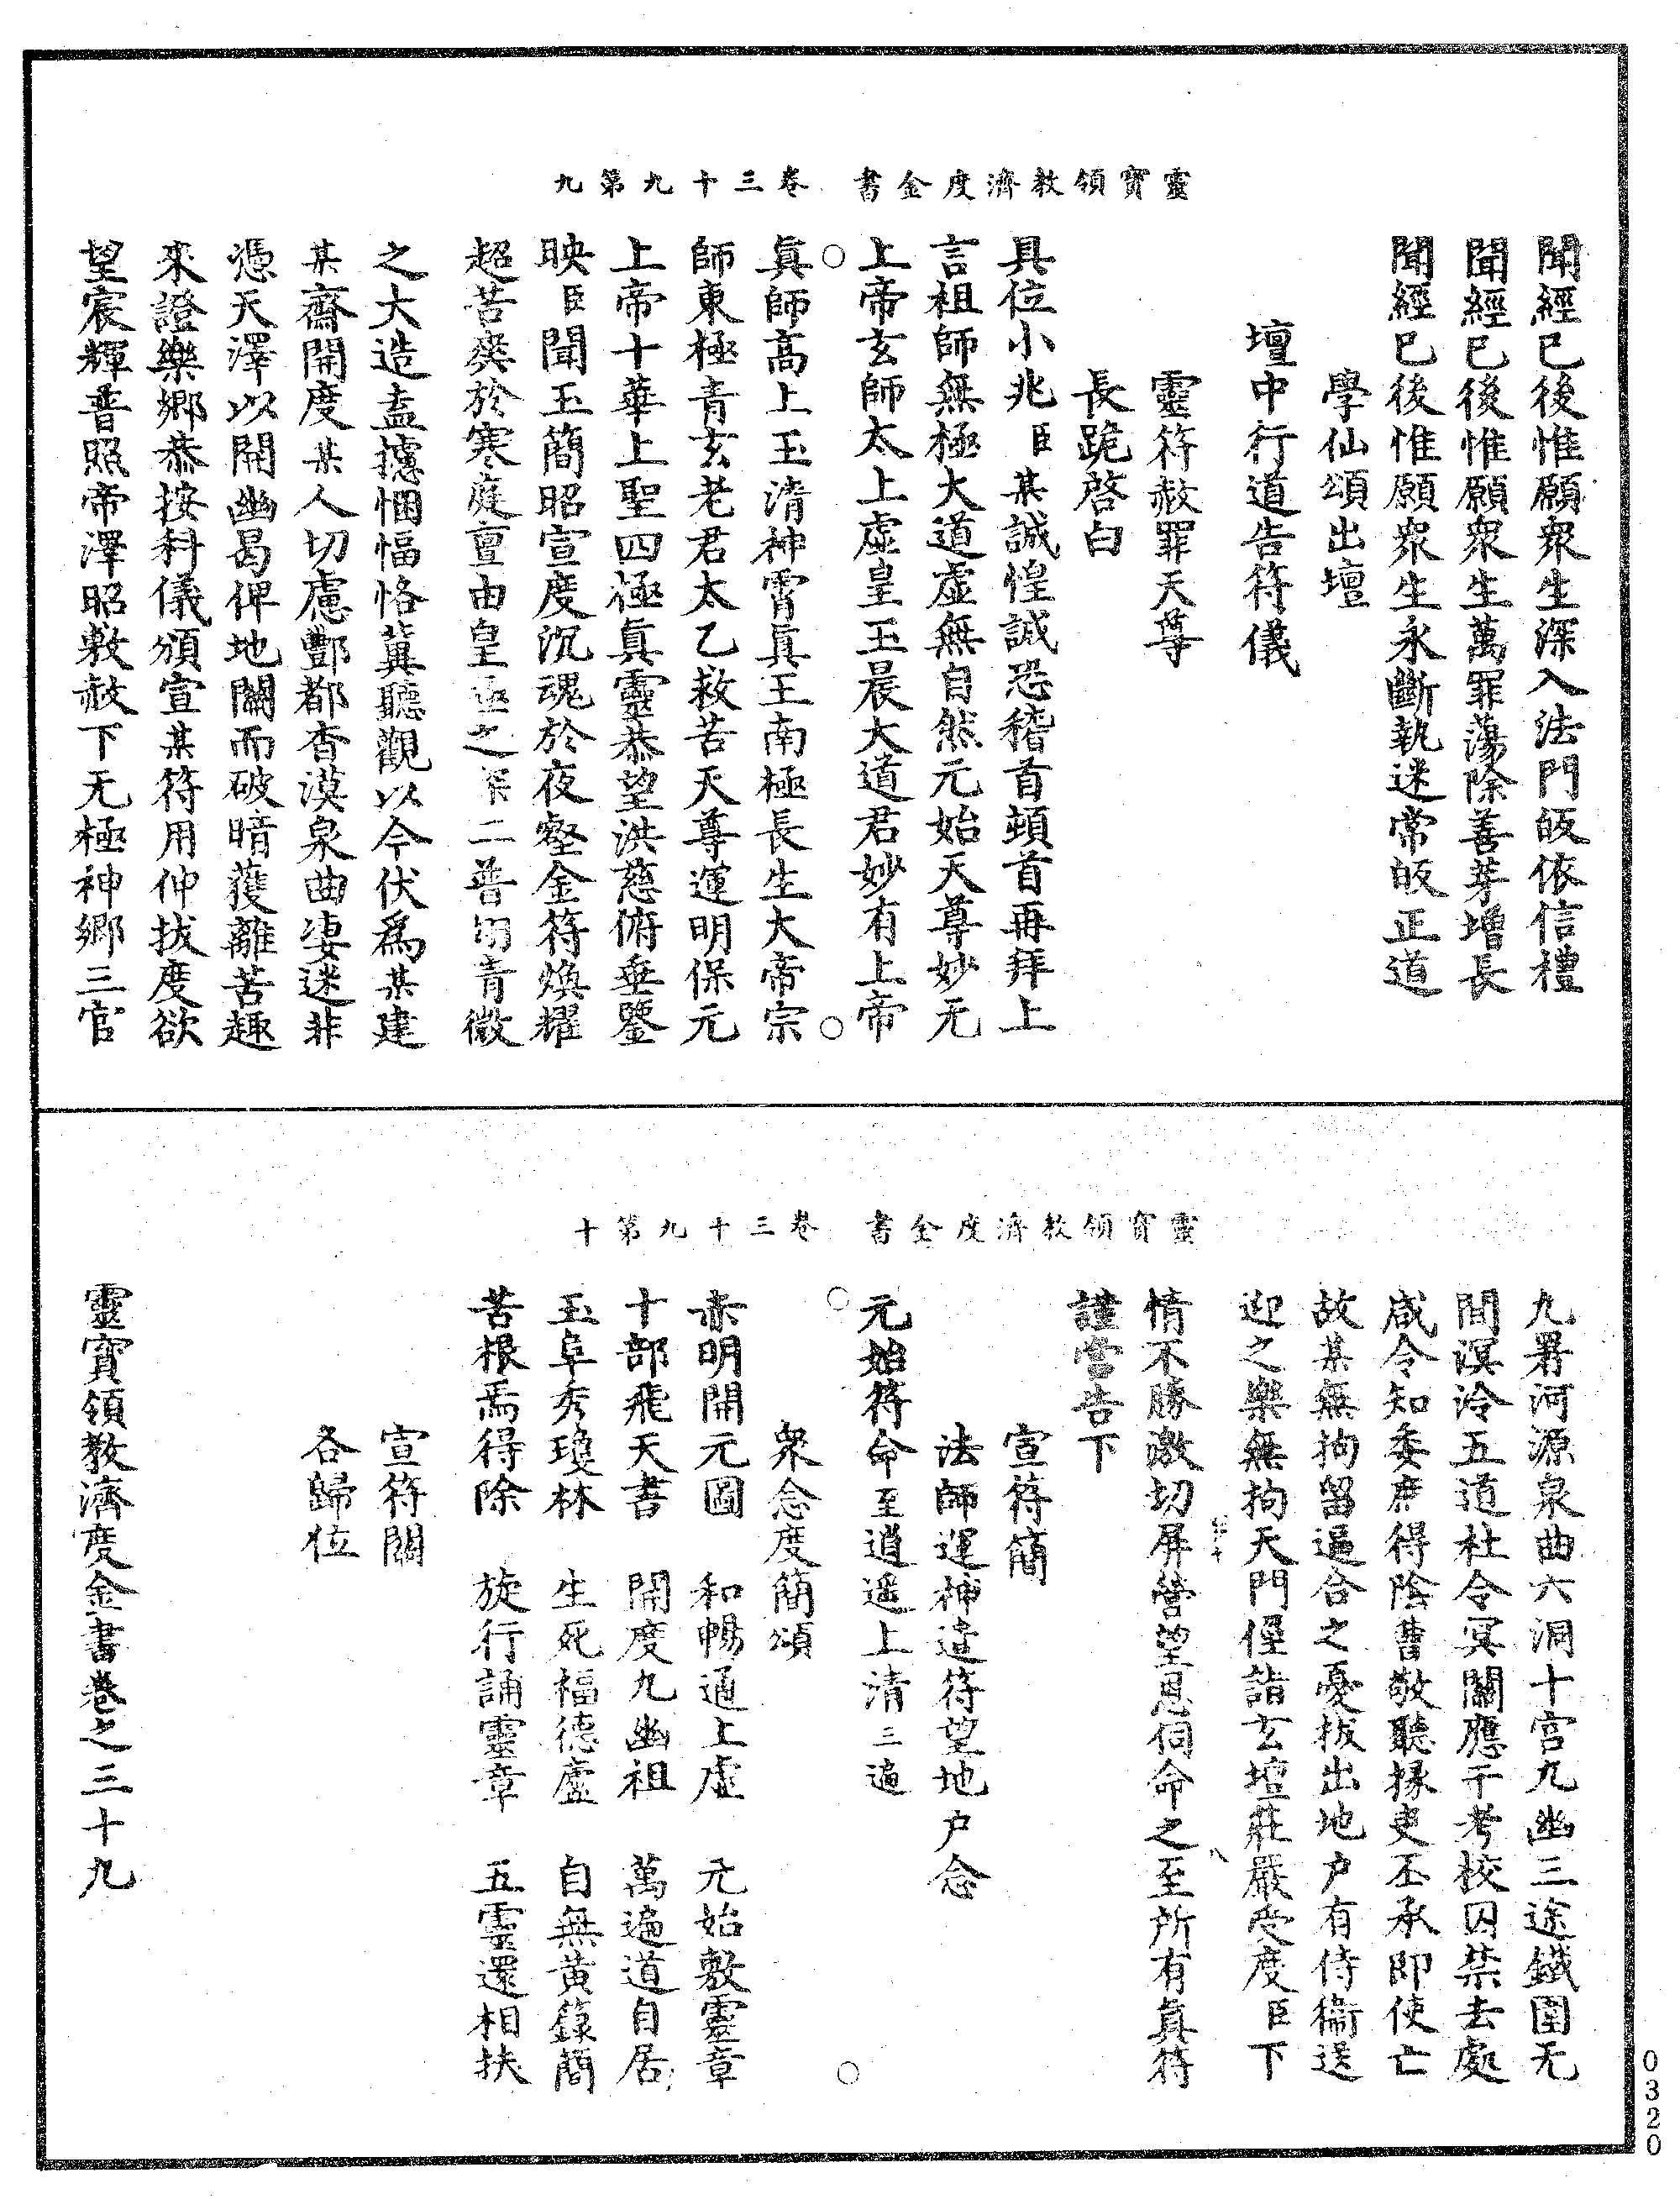 靈寶領教濟度金書　卷三十九第九
聞經巳後惟願衆生深入法門皈依信禮
聞經巳後惟願衆生萬罪蕩除善芽增長
聞經巳後惟願衆生永斷執迷常皈正道
學仙頌出壇
壇中行道告符儀
靈符赦罪天尊
長跪啓白
具位小兆臣某誠惶誠恐稽首頓首再拜上
言祖師無極大道虛無自然元始天尊妙无
上帝玄師太上虛皇玉晨大道君妙有上帝
○　○
眞師高上玉清神霄眞王南極長生大帝宗
師東極青玄老君太乙救苦天尊運明保元
上帝十華上聖四極眞靈恭望洪慈俯垂鑒
映臣聞玉簡昭宣度沉魂於夜壑金符煥耀
超苦爽於寒庭亶由皇極之　二普明青微
之大造盍攄悃愊恪冀聽觀以今伏爲某建
某齋開度某人切慮酆都杳漠泉曲淒迷非
憑天澤以開幽曷俾地關而破暗蒦離苦趣
來證樂鄉恭按科儀頒宣某符用伸拔度欲
望宸輝普照帝澤昭敷赦下无極神鄉三官
靈寶領教濟度金書　卷三十九第十
九署河源泉曲六洞十宮九幽三途鐵圍无
間溟泠五道杜令冥關應干考校囚禁去處
咸令知委庶得陰曹敬聽掾吏丕承即使亡
故某無拘留逼合之憂拔出地户有侍衞送
迎之樂無拘天門徑詣玄壇莊嚴受度臣下
情不勝激切屏營望恩伺命之至所有眞符
八
謹當告下
宣符簡
法師運神遣符望地户念
元始符命至道遥上清三遍
○　○
衆念度簡頌
赤明開元圖　和暢通上虛　元始敷靈章
十部飛天書　開度九幽祖　萬遍道自居
玉阜秀瓊林　生死福德廬　自無黃籙簡
苦根焉得除　旋行誦靈章　五靈還相扶
宣符關
各歸位
靈寶領教濟度金書卷之三十九
0320